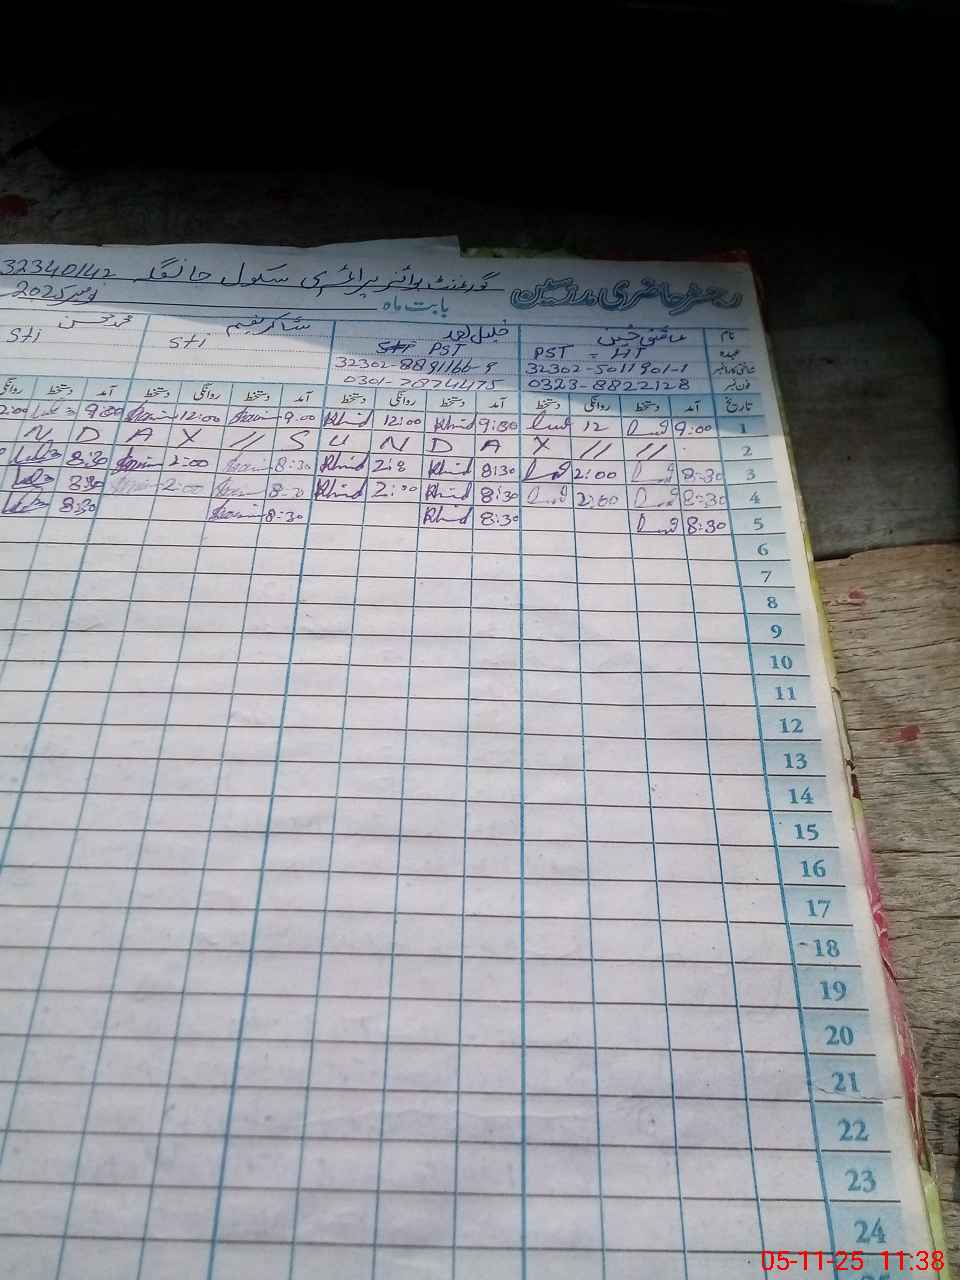 رجسٹر حاضری مدرسین گورنمنٹ بوائز پرائمری سکول جانگلہ 32340142
بابت ماہ نومبر 2025
نام عاشق حسین خلیل احمد شاکر محمد محسن
عہدہ PST = HT PST Sti Sti
شناختی کارڈ نمبر 32302-5011901-1 32302-8891166-9
فون نمبر 0323-8822128 0301-7874475
تاریخ آمد دستخط روانگی دستخط آمد دستخط روانگی دستخط آمد دستخط روانگی دستخط آمد دستخط روانگی
1 9:00 12 9:00 Khlid 12:00 Khlid 9:00 12:00 9:00 2:00
N D A Y // S U N D A Y // // 2
3 8:30 2:00 8:30 Khlid 2:0 Khlid 8:30 2:00 8:30
4 8:30 2:00 8:30 Khlid 2:00 Khlid 8:30 2:00 8:30
5 8:30 8:30 Khlid 8:30 8:30
6
7
8
9
10
11
12
13
14
15
16
17
18
19
20
21
22
23
24
05-11-25 11:38